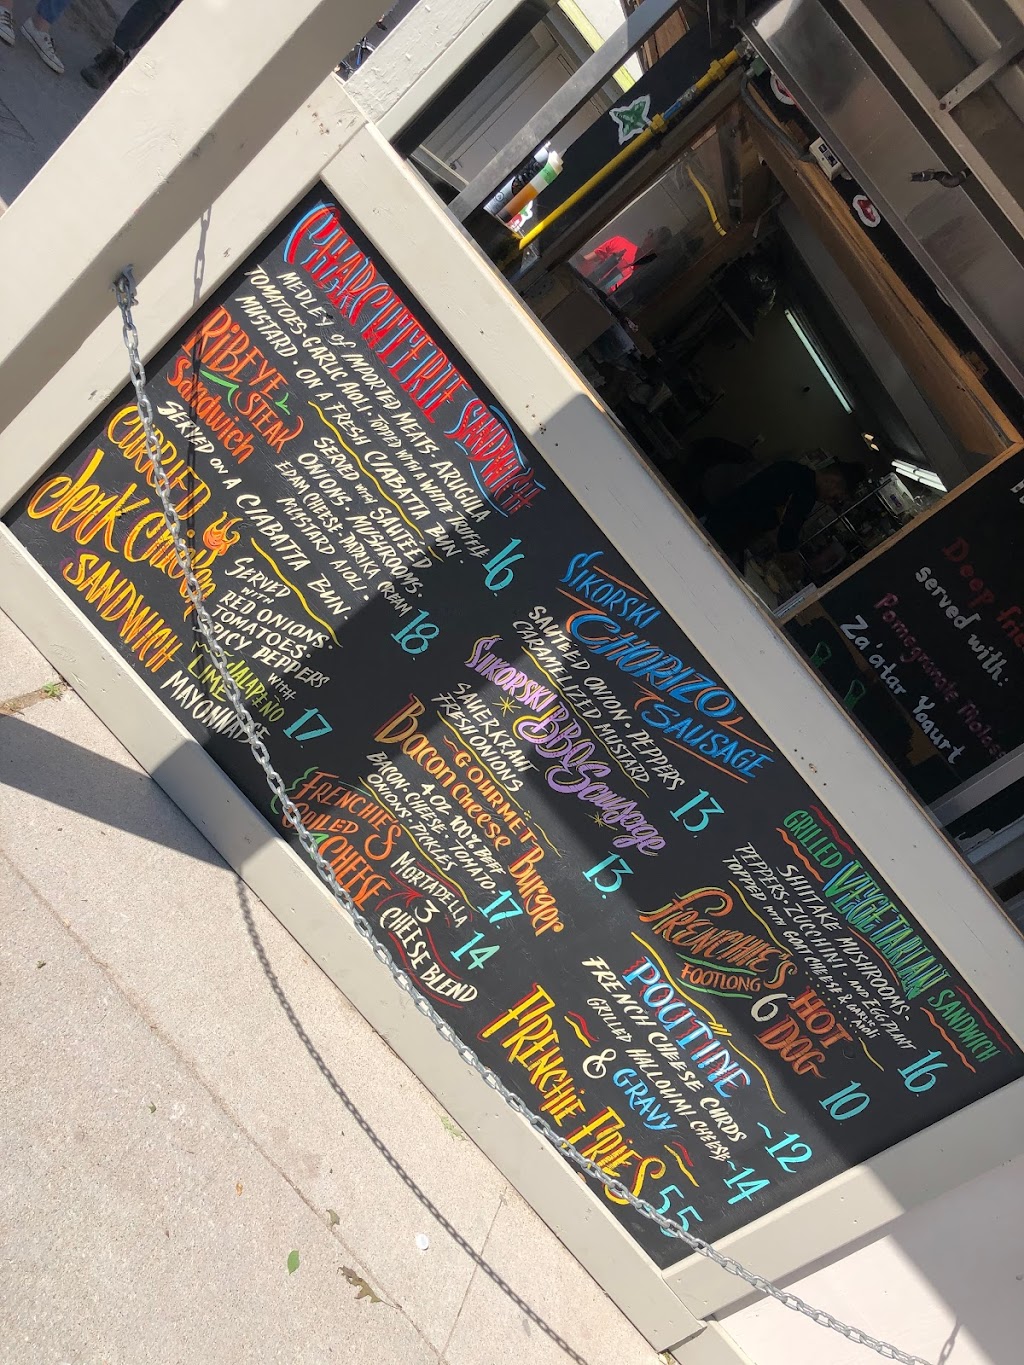 CHARCUTERIE SANDWICH
MEDLEY of IMPORTED MEATS, ARUGULA
TOMATOES - GARLIC AIOLI - TOPPED WITH A WHITE TRUFFLE
MUSTARD . ON A FRESH CIABATTA BUN.
16
RIBEYE STEAK
Sandwich
SERVED with SAUTEED
ONIONS, MUSHROOMS.
EDAM CHEESE - PAPRIKA CREAM
MUSTARD AIOLI.
18
SERVED ON A CIABATTA BUN.
CURRIED
Jerk Chicken
SANDWICH
SERVED
WITH
RED ONIONS.
TOMATOES.
SPICY PEPPERS
WITH
JALAPENO
LIME
MAYONNAISE
17
SIKORSKI
CHORIZO
SAUSAGE
SAUTEED ONION, PEPPERS
CARAMELIZED MUSTARD
13
SIKORSKI BBQ Sausage
SAUERKRAUT
FRESH ONIONS
13.
GOURMET
Bacon Cheese Burger
4 OZ 100% BEEF
BACON. CHEESE. TOMATO.
ONIONS. PICKLES.
17.
FRENCHIE'S
GRILLED CHEESE
MORTADELLA
3
CHEESE BLEND
14
GRILLED VEGETARIAN SANDWICH
SHIITAKE MUSHROOMS.
PEPPERS. ZUCCHINI. AND EGGPLANT
TOPPED WITH GOAT CHEESE & GARLIC AIOLI
16
FRENCHIE'S HOT DOG
FOOTLONG
10
POUTINE 6
FRENCH CHEESE CURDS ~12
GRILLED HALLOUMI CHEESE ~14
& GRAVY
FRENCHIE FRIES 55
Deep
served with:
Pomegranate
Za'atar Yogurt